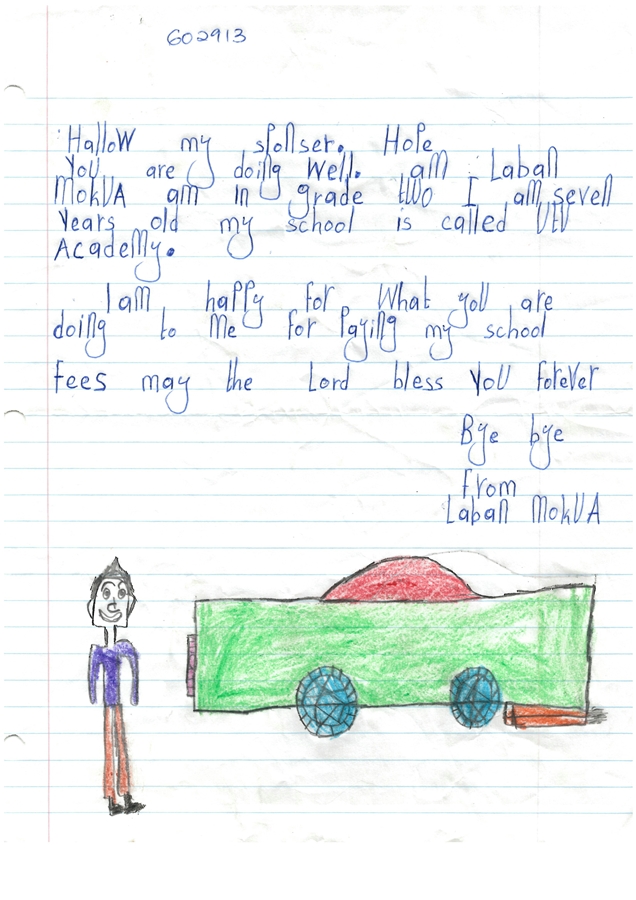 602913
Hallow my sponser. Hope
You are doing well. am Laban
MokUA am in grade two I am seven
Years old my school is called
Academy.
I am happy for What you are
doing to Me for Paying my school
Fees may the Lord bless YoU forever
Bye bye
From
Laban MokUA